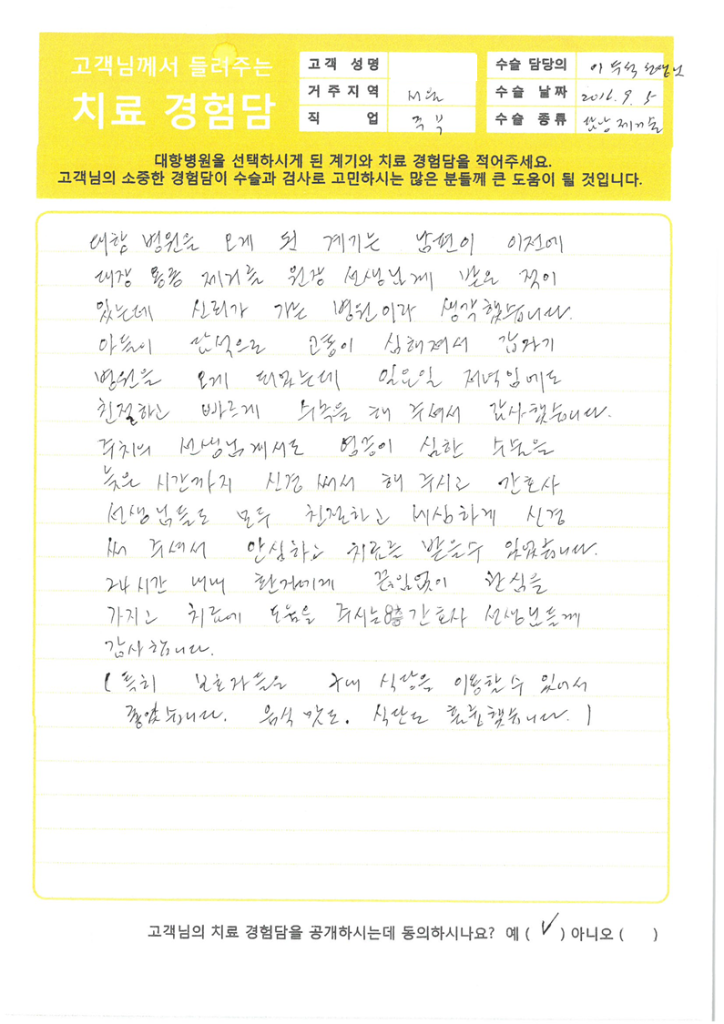 고객님께서 들려주는
치료 경험담
고객 성명
거주지역 서울
직 업 주부
수술 담당의 이두석 선생님
수술 날짜 2016. 9. 5
수술 종류 담낭 제거술
대항병원을 선택하시게 된 계기와 치료 경험담을 적어주세요.
고객님의 소중한 경험담이 수술과 검사로 고민하시는 많은 분들께 큰 도움이 될 것입니다.
대항 병원을 오게 된 계기는 남편이 이전에
대장 용종 제거를 원장 선생님께 받은 적이
있는데 신뢰가 가는 병원이라 생각했습니다.
아들이 담석으로 고통이 심해져서 갑자기
병원을 오게 되었는데 일요일 저녁임에도
친절하고 빠르게 수속을 해 주셔서 감사했습니다.
주치의 선생님께서도 염증이 심한 수술을
늦은 시간까지 신경 써서 해 주시고 간호사
선생님들도 모두 친절하고 세심하게 신경
써 주셔서 안심하고 치료를 받을 수 있었습니다.
24시간 내내 환자에게 끊임없이 관심을
가지고 치료에 도움을 주시는 8층 간호사 선생님들께
감사합니다.
(특히 보호자들은 구내 식당을 이용할 수 있어서
좋았습니다. 음식 맛도. 식단도 훌륭했습니다.)
고객님의 치료 경험담을 공개하시는데 동의하시나요? 예 ( ✓ ) 아니오 ( )